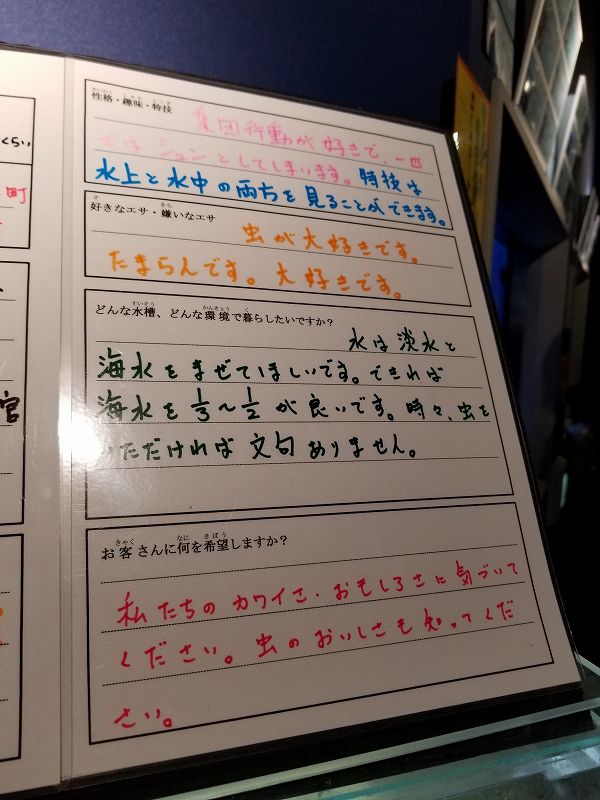 くらい
町
官
せいかく しゅみ とくぎ
性格・趣味・特技
集団行動が好きで、一匹
ではションとしてしまいます。特技は
水上と水中の両方を見ることができます。
す きら
好きなエサ・嫌いなエサ
虫が大好きです。
たまらんです。大好きです。
すいそう かんきょう く
どんな水槽、どんな環境で暮らしたいですか？
水は淡水と
海水をまぜてほしいです。できれば
海水を1/3〜1/2が良いです。時々、虫を
いただければ文句ありません。
きゃく なに きぼう
お客さんに何を希望しますか？
私たちのカワイさ・おもしろさに気づいて
ください。虫のおいしさも知ってくだ
さい。